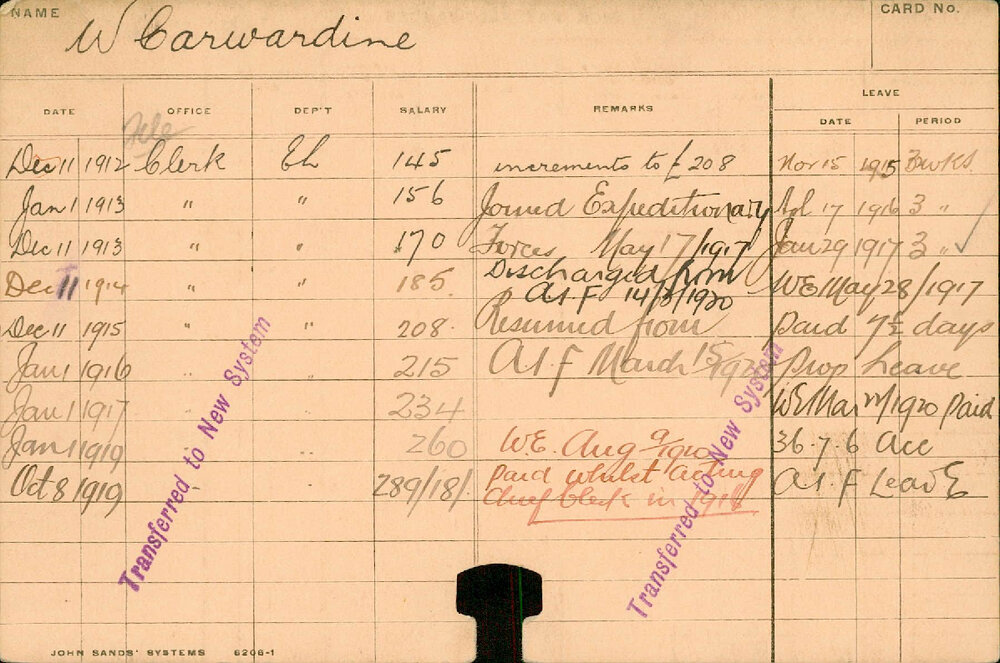 NAME
CARD NO.
W Carwardine
DATE OFFICE DEP'T SALARY REMARKS LEAVE
DATE PERIOD
Dec 11 1912 Clerk Eh 145 increments to £208 Nov 15 1915 3 wks
Jan 1 1913 " " 156 Joined Expeditionary Apl 17 1916 3 "
Dec 11 1913 " " 170 Forces May 17/1917 Jan 29 1917 3 " ✓
Dec 11 1914 " " 185. Discharged from
A.I.F 14/3/1920 WE May 28/1917
Dec 11 1915 " " 208. Resumed from paid 7½ days
Jan 1 1916 " " 215 A.I.F March 15/1920 Prop Leave
Jan 1 1917 " " 234 WE Mar /1920 paid
Jan 1 1919 " 260 W.E. Aug 9/1920 36.7.6 Acc
Oct 8 1919 289/18/ paid whilst acting A.I.F Leave
Chief Clerk in 1918
Transferred to New System
Transferred to New System
JOHN SANDS' SYSTEMS 6206-1